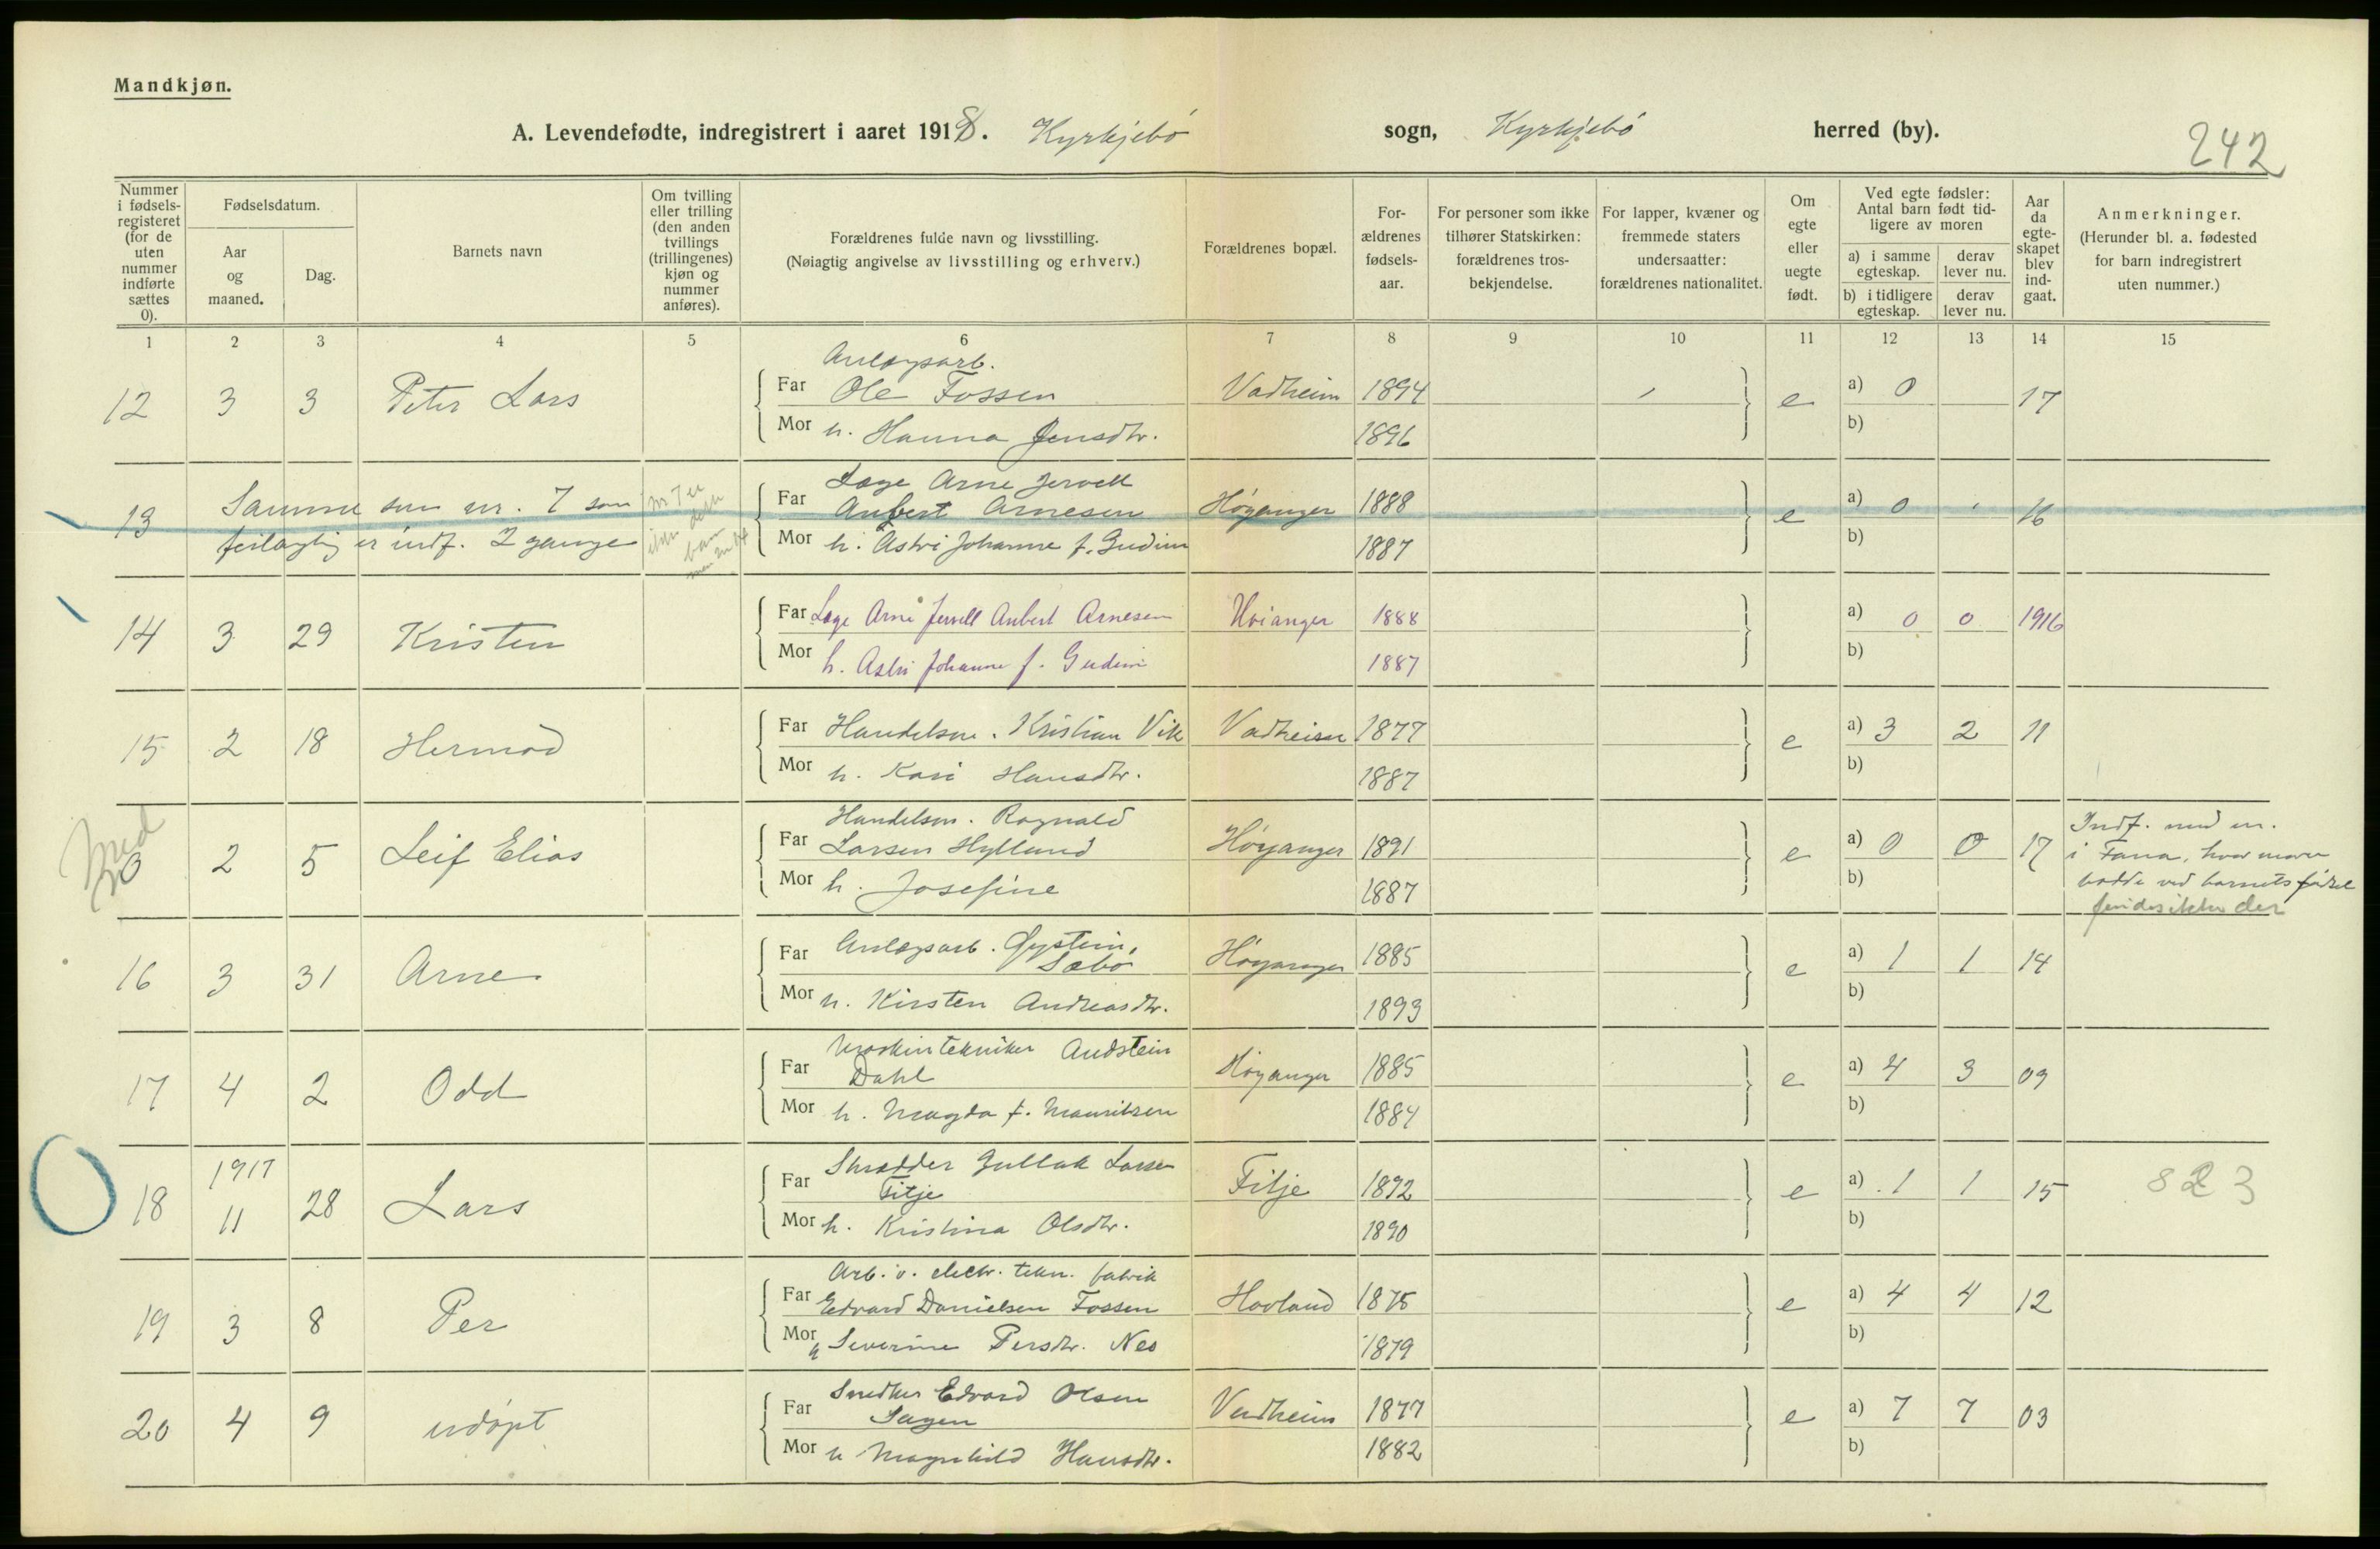 Mandkjøn.
A. Levendefødte, indregistrert i aaret 1918. Kyrkjebø sogn, Kyrkjebø herred (by).
242
Nummer i fødsels-registeret (for de uten nummer indførte sættes 0).
Fødselsdatum.
Aar og maaned.
Dag.
Barnets navn
Om tvilling eller trilling (den anden tvillings (trillingenes) kjøn og nummer anføres).
Forældrenes fulde navn og livsstilling.
(Nøiagtig angivelse av livsstilling og erhverv.)
Forældrenes bopæl.
For-ældrenes fødsels-aar.
For personer som ikke tilhører Statskirken: forældrenes tros-bekjendelse.
For lapper, kvæner og fremmede staters undersaatter: forældrenes nationalitet.
Om egte eller uegte født.
Ved egte fødsler: Antal barn født tid-ligere av moren
a) i samme egteskap.
derav lever nu.
b) i tidligere egteskap.
derav lever nu.
Aar da egte-skapet blev ind-gaat.
Anmerkninger.
(Herunder bl. a. fødested for barn indregistrert uten nummer.)
1 2 3 4 5 6 7 8 9 10 11 12 13 14 15
Anlægsarb.
12 3 3 Peter Lars Far Ole Fossen Vadheim 1894 e a) 0 17
Mor h. Hanna Jensdtr. 1896 b)
Læge Arne Jervell
13 Samme som nr. 7 som Far Aubert Arnesen Høyanger 1888 e a) 0 16
feilagtig er indf. 2 gange Mor h. Astri Johanne f. Gudim 1887 b)
14 3 29 Kristen Far Læge Arne Jervell Aubert Arnesen Høianger 1888 a) 0 0 1916
Mor h. Astri Johanne f. Gudim 1887 b)
15 2 18 Hermod Far Handelsm. Kristian Vik Vadheim 1877 e a) 3 2 11
Mor h. Kari Hansdtr. 1887 b)
Handelsm. Ragnald
med
0 2 5 Leif Elias Far Larsen Hylland Høyanger 1891 e a) 0 0 17
Mor h. Josefine 1887 b)
Indf. med nr.
i Fana, hvor moren
bodde ved barnets fødsel
findes ikke der
16 3 31 Arne Far Anlægsarb. Øystein Sæbø Høyanger 1885 e a) 1 1 14
Mor h. Kirsten Andreasdtr. 1893 b)
Maskintekniker Audstein
17 4 2 Odd Far Dahl Høyanger 1885 e a) 4 3 09
Mor h. Magda f. Mauritzen 1884 b)
1917 Skrædder Gullak Larsen
18 11 28 Lars Far Fitje Fitje 1892 e a) 1 1 15 823
Mor h. Kristina Olsdtr. 1890 b)
Arb. v. electr. tekn. fabrik
19 3 8 Per Far Edvard Danielsen Fossen Hovland 1875 e a) 4 4 12
Mor h Severine Persdtr. Nes 1879 b)
Snedker Edvard Olsen
20 4 9 udøpt Far Sagen Vadheim 1877 e a) 7 7 03
Mor h Magnhild Hansdtr. 1882 b)